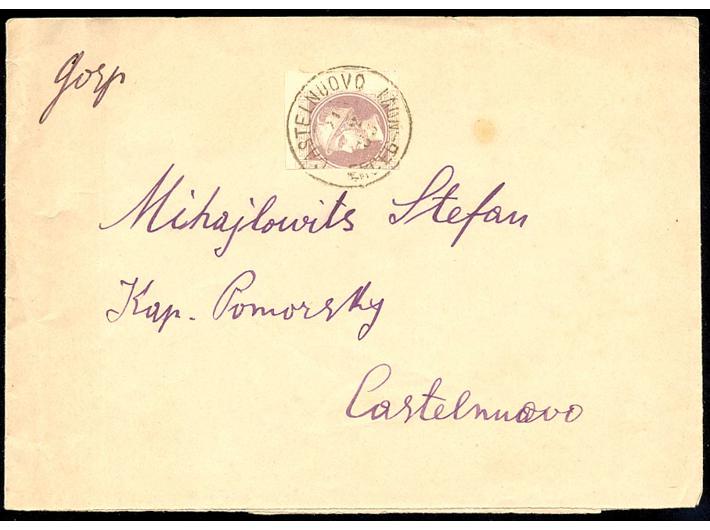 Gosp
CASTELNUOVO
Mihajlowits Stefan
Kap. Pomorsky
Castelnuovo